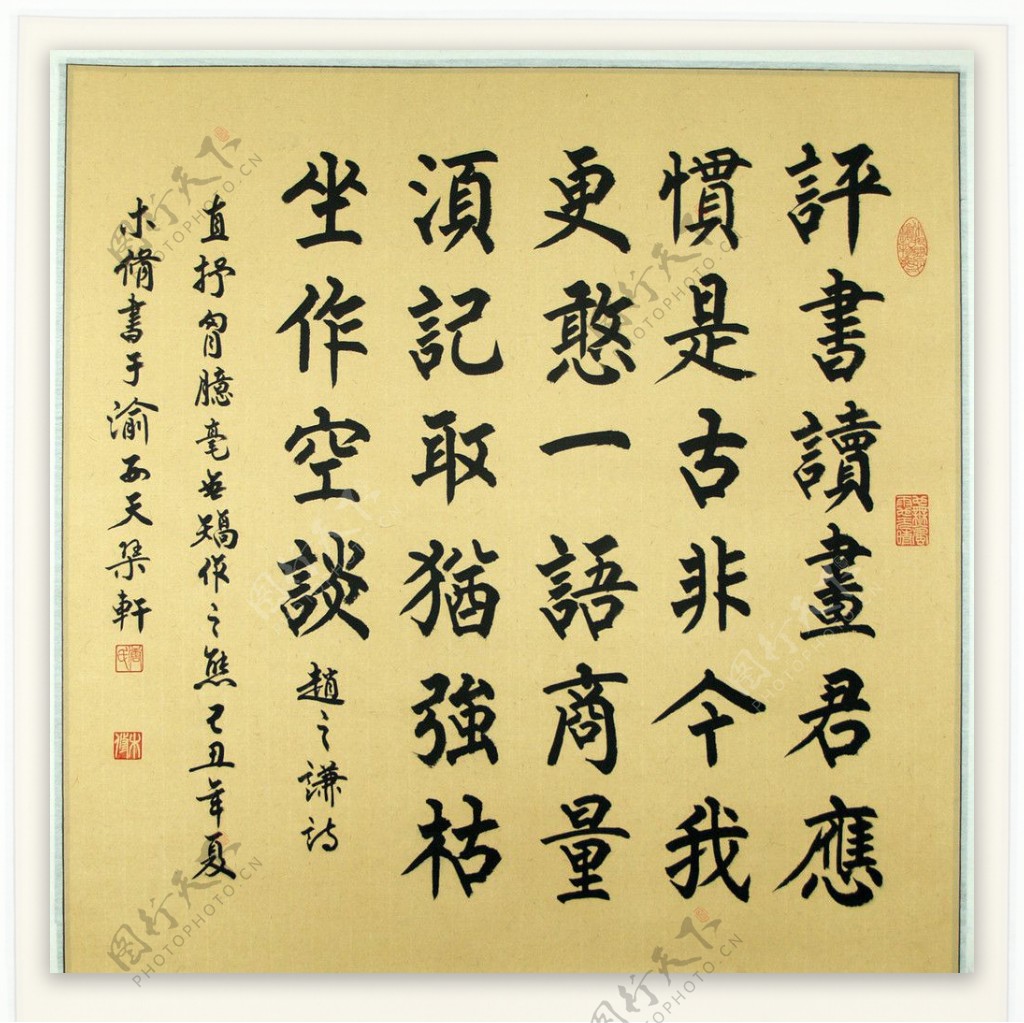 評書讀畫君應
慣是古非今我
更憨一語商量
須記取猶強枯
坐作空談
趙之謙詩
直抒胸臆毫無矯作之態己丑年夏
木脩書于渝西天琹軒
图行天下
PHOTOPHOTO.CN